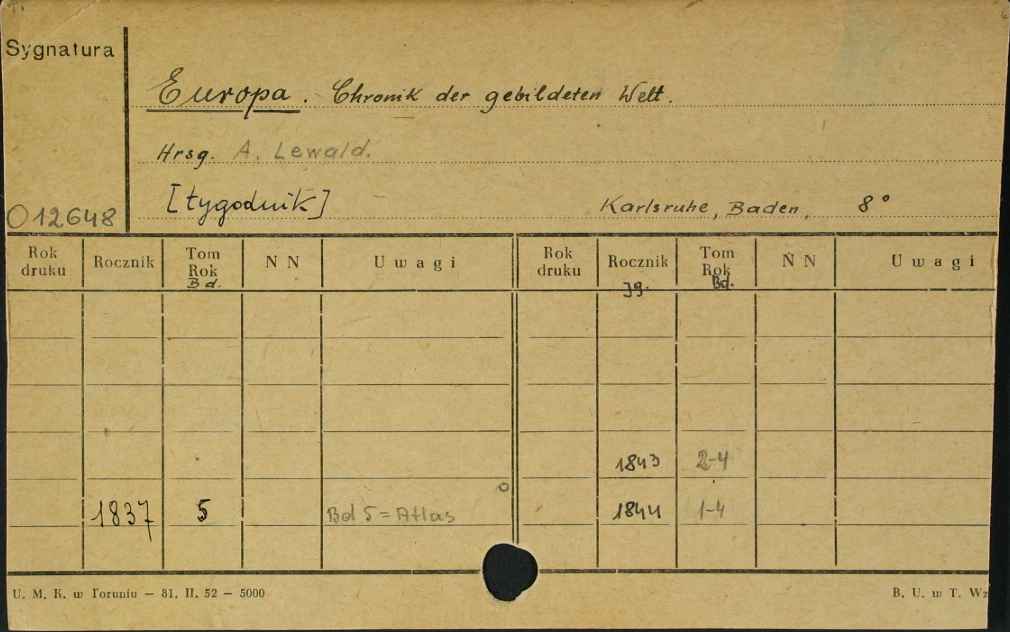 Sygnatura
Europa. Chronik der gebildeten Welt.
Hrsg. A. Lewald.
[tygodnik] Karlsruhe, Baden, 8°
012648
Rok druku Rocznik Tom Rok Bd. N N Uwagi Rok druku Rocznik Jg. Tom Rok Bd. N N Uwagi
1843 2-4
1837 5 Bd 5 = Atlas 1844 1-4
U. M. K. w Toruniu — 81. II. 52 — 5000 B. U. w T. Wz